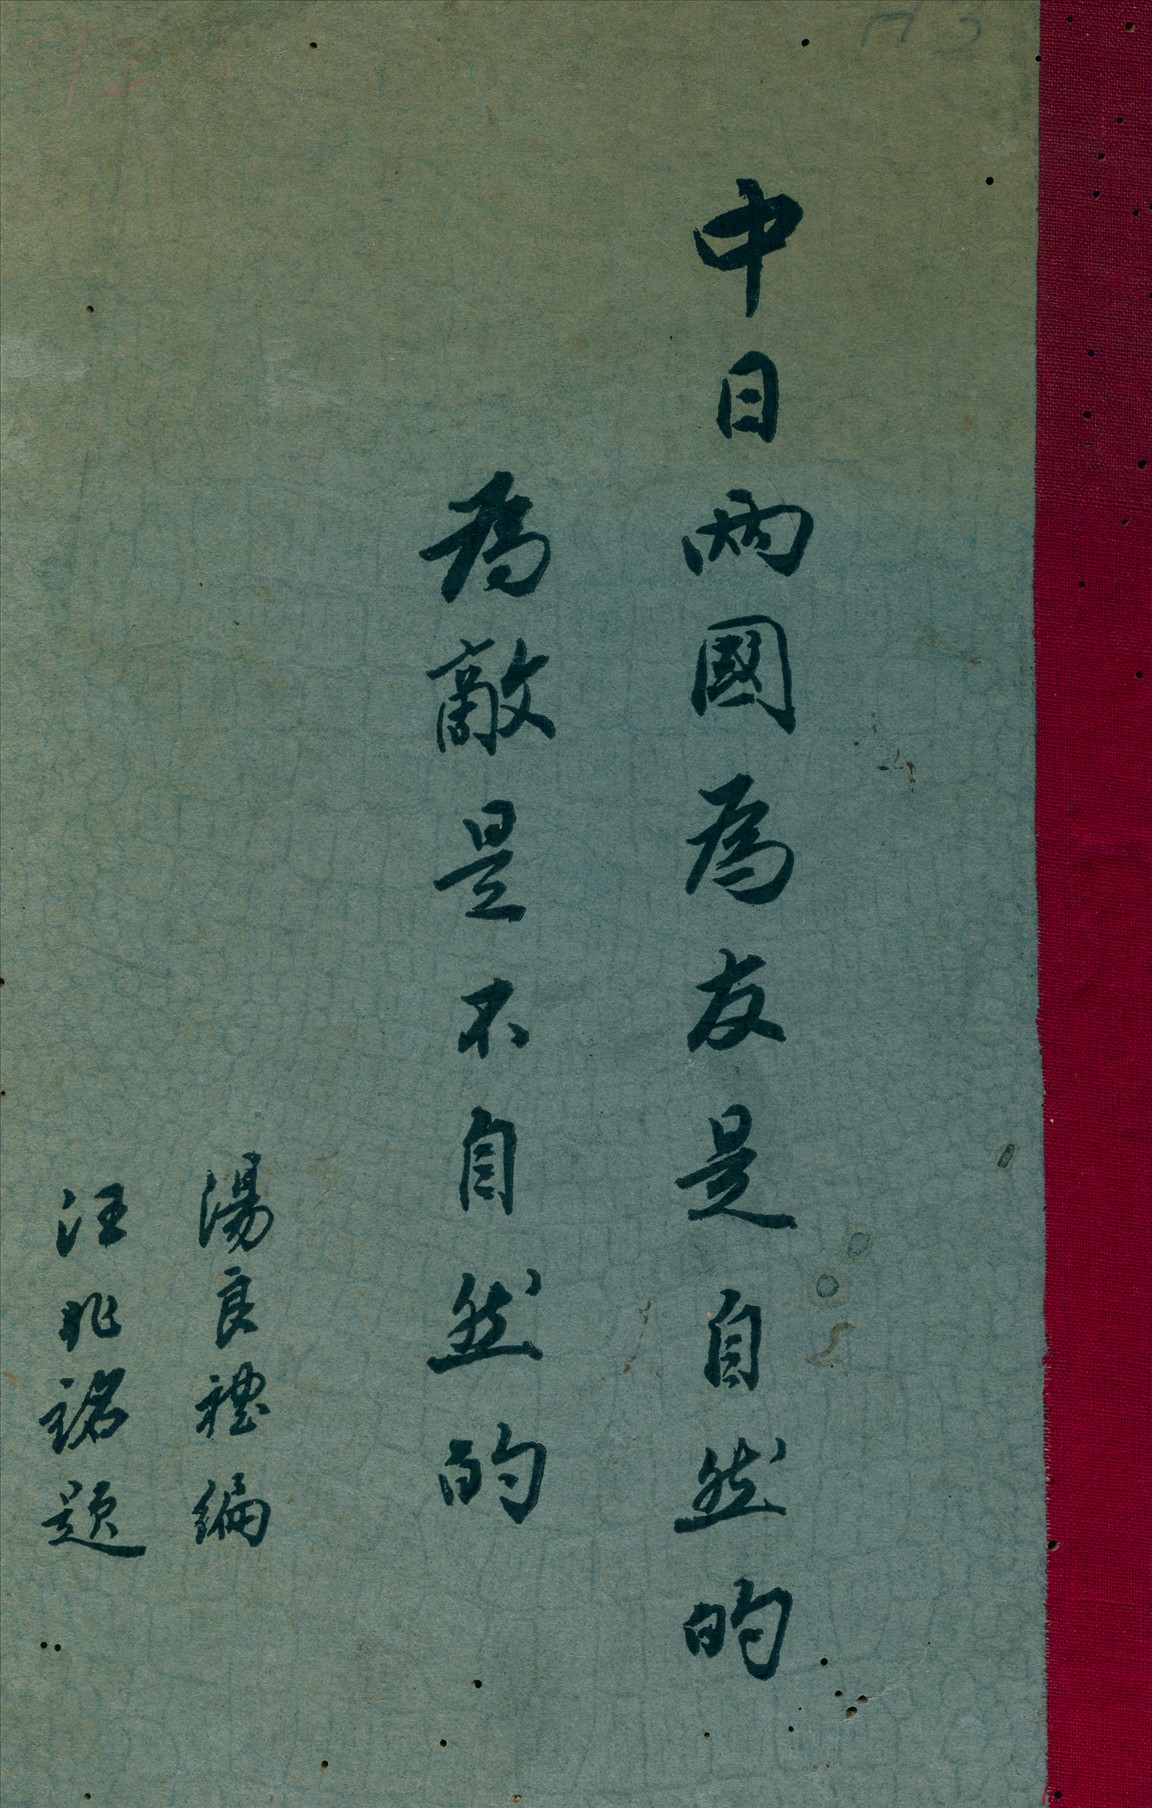 中日兩國為友是自然的
為敵是不自然的
湯良禮編
汪兆銘題